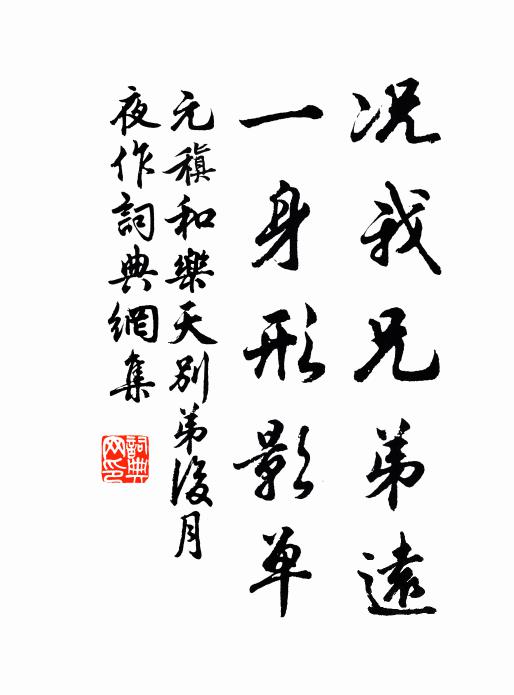 况我兄弟遠
一身形影单
元稹和樂天别弟後月
夜作詞典網集
詞典网印